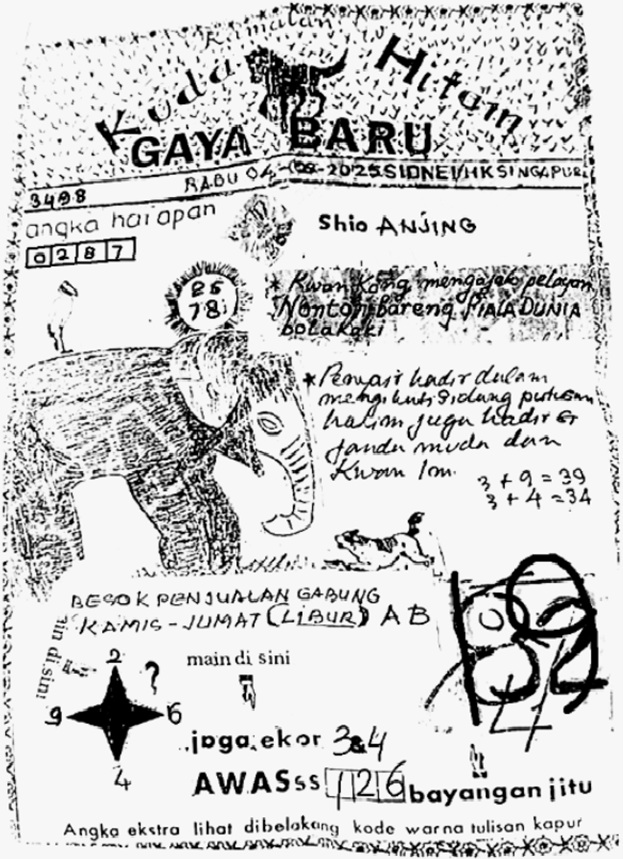 Ramalan
Kuda Hitam
GAYA BARU
3498 RABU 04-06-2025. SIDNEI/HK SINGAPUR
angka harapan
0287
Shio ANJING
25
78
* Kwan Kong mengajak pelayan
Nonton bareng PIALA DUNIA
bolakaki
* Penyair hadir dalam
mengikuti sidung putusan
hakim juga hadir
janda muda dan
Kwan Im.
3 + 9 = 39
3 + 4 = 34
BESOK PENJUALAN GABUNG
KAMIS - JUMAT (LIBUR) AB
main di sini
2
9 ? 6
4
joga, ekor 3&4
AWASss 126 bayangan jitu
Angka ekstra lihat dibelakang kode warna tulisan kapur